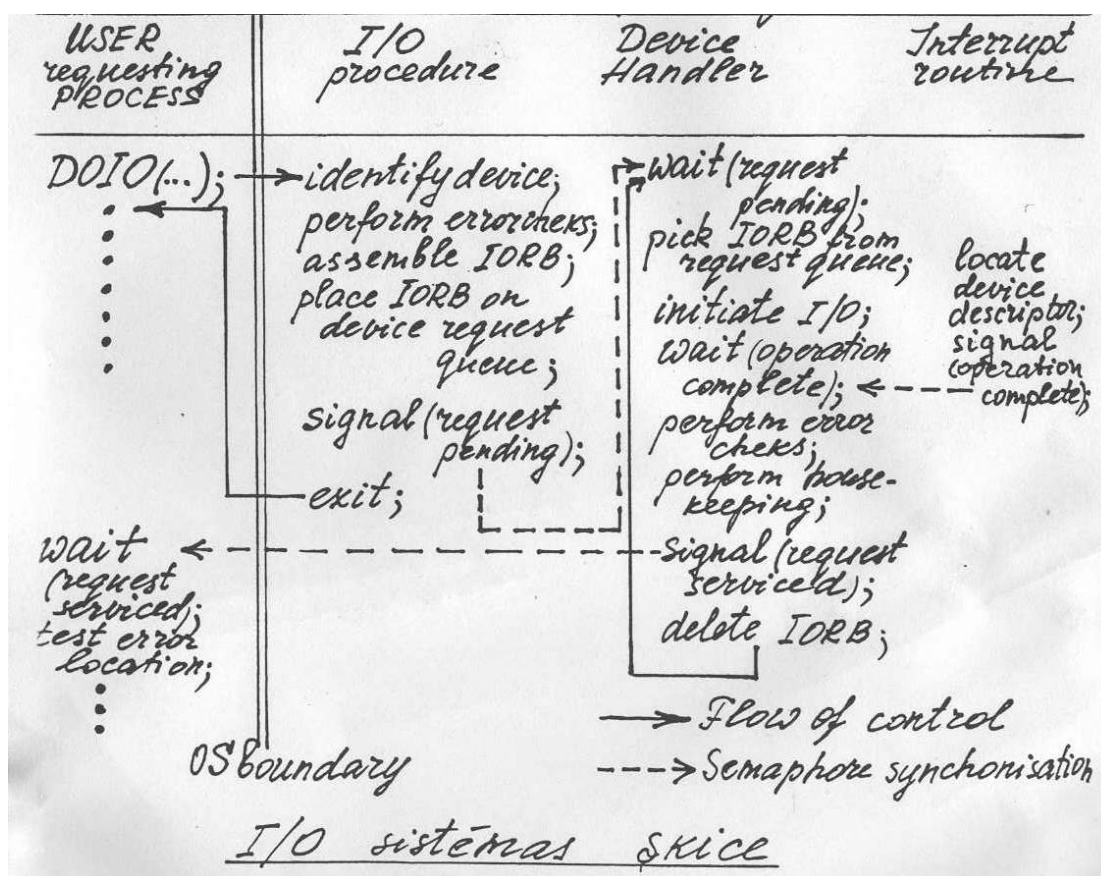 USER
requesting
PROCESS
I/O
procedure
Device
Handler
Interrupt
routine
DOIO(...);
identify device;
perform errorcheks;
assemble IORB;
place IORB on
device request
queue;
signal (request
pending);
exit;
wait (request
pending);
pick IORB from
request queue;
initiate I/O;
wait (operation
complete);
perform error
cheks;
perform house-
keeping;
signal (request
serviced);
delete IORB;
locate
device
descriptor;
signal
(operation
complete);
wait
(request
serviced);
test error
location;
OS boundary
Flow of control
Semaphore synchonisation
I/O sistēmas skice